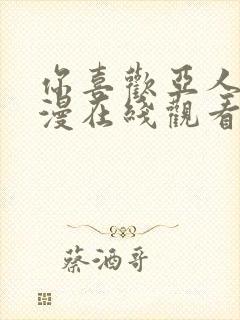 你喜歡亞人
漫在綫觀看
蔡酒哥